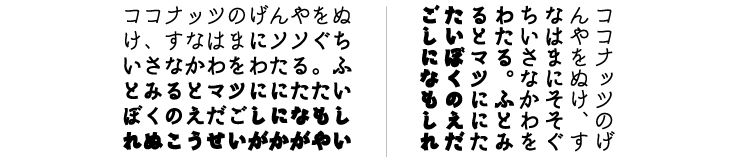 ココナッツのげんやをぬ
け、すなはまにソソぐち
いさなかわをわたる。ふ
とみるとマツににたたい
ぼくのえだごしになもし
れぬこうせいがかがやい
ココナッツのげ
んやをぬけ、す
なはまにそそぐ
ちいさなかわを
わたる。ふとみ
るとマツににた
たいぼくのえだ
ごしになもしれ